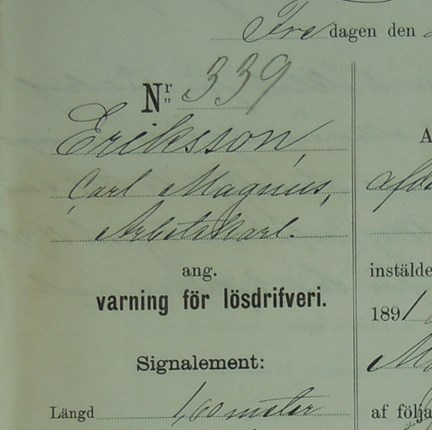 Fredagen den
Nr 339
Eriksson,
Carl Magnus,
Arbetskarl.
ang.
varning för lösdrifveri.
Signalement:
Längd 1,60 meter
A
instälde
1891
af följa